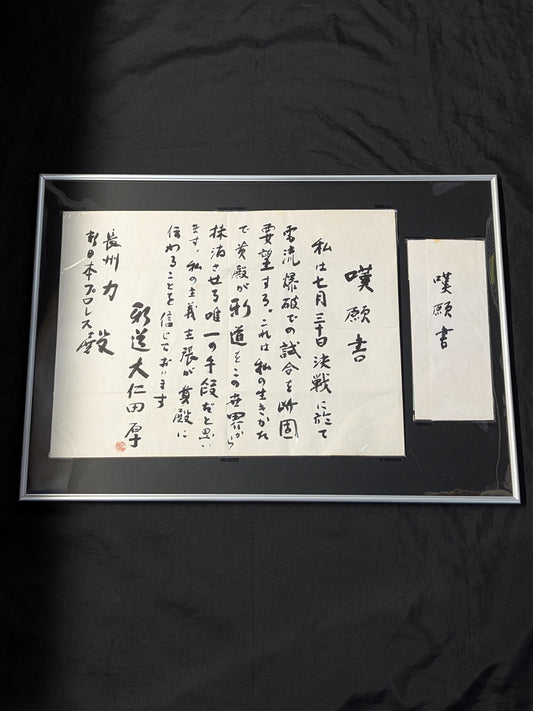 嘆願書
嘆願書
私は七月三十日決戦に於て
電流爆破での試合を断固
要望する。これは私の生きかた
で貴殿が邪道をこの世界から
抹消させる唯一の手段だと思い
ます。私の主義主張が貴殿に
伝わることを信じております
邪道 大仁田 厚
長州 力
新日本プロレス 殿